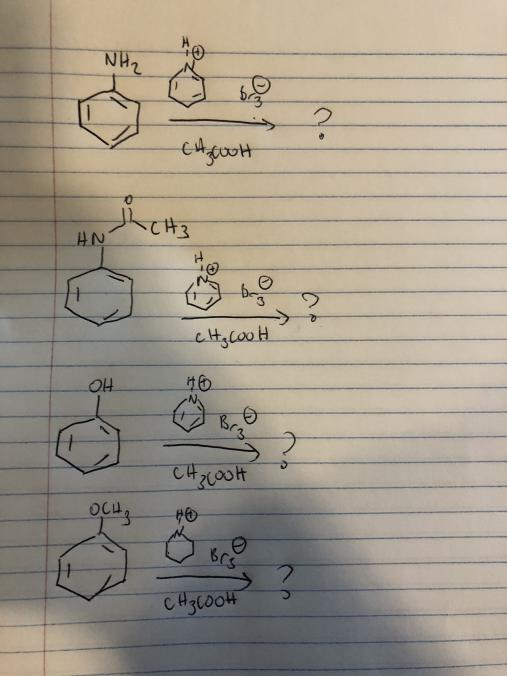 NH₂ H ⊕ N Br₃ ⊖
CH₃COOH ?
O
HN CH₃
H ⊕ N Br₃ ⊖ ?
CH₃COOH
OH H ⊕ N Br₃ ⊖ ?
CH₃COOH
OCH₃ H ⊕ N Br₃ ⊖ ?
CH₃COOH